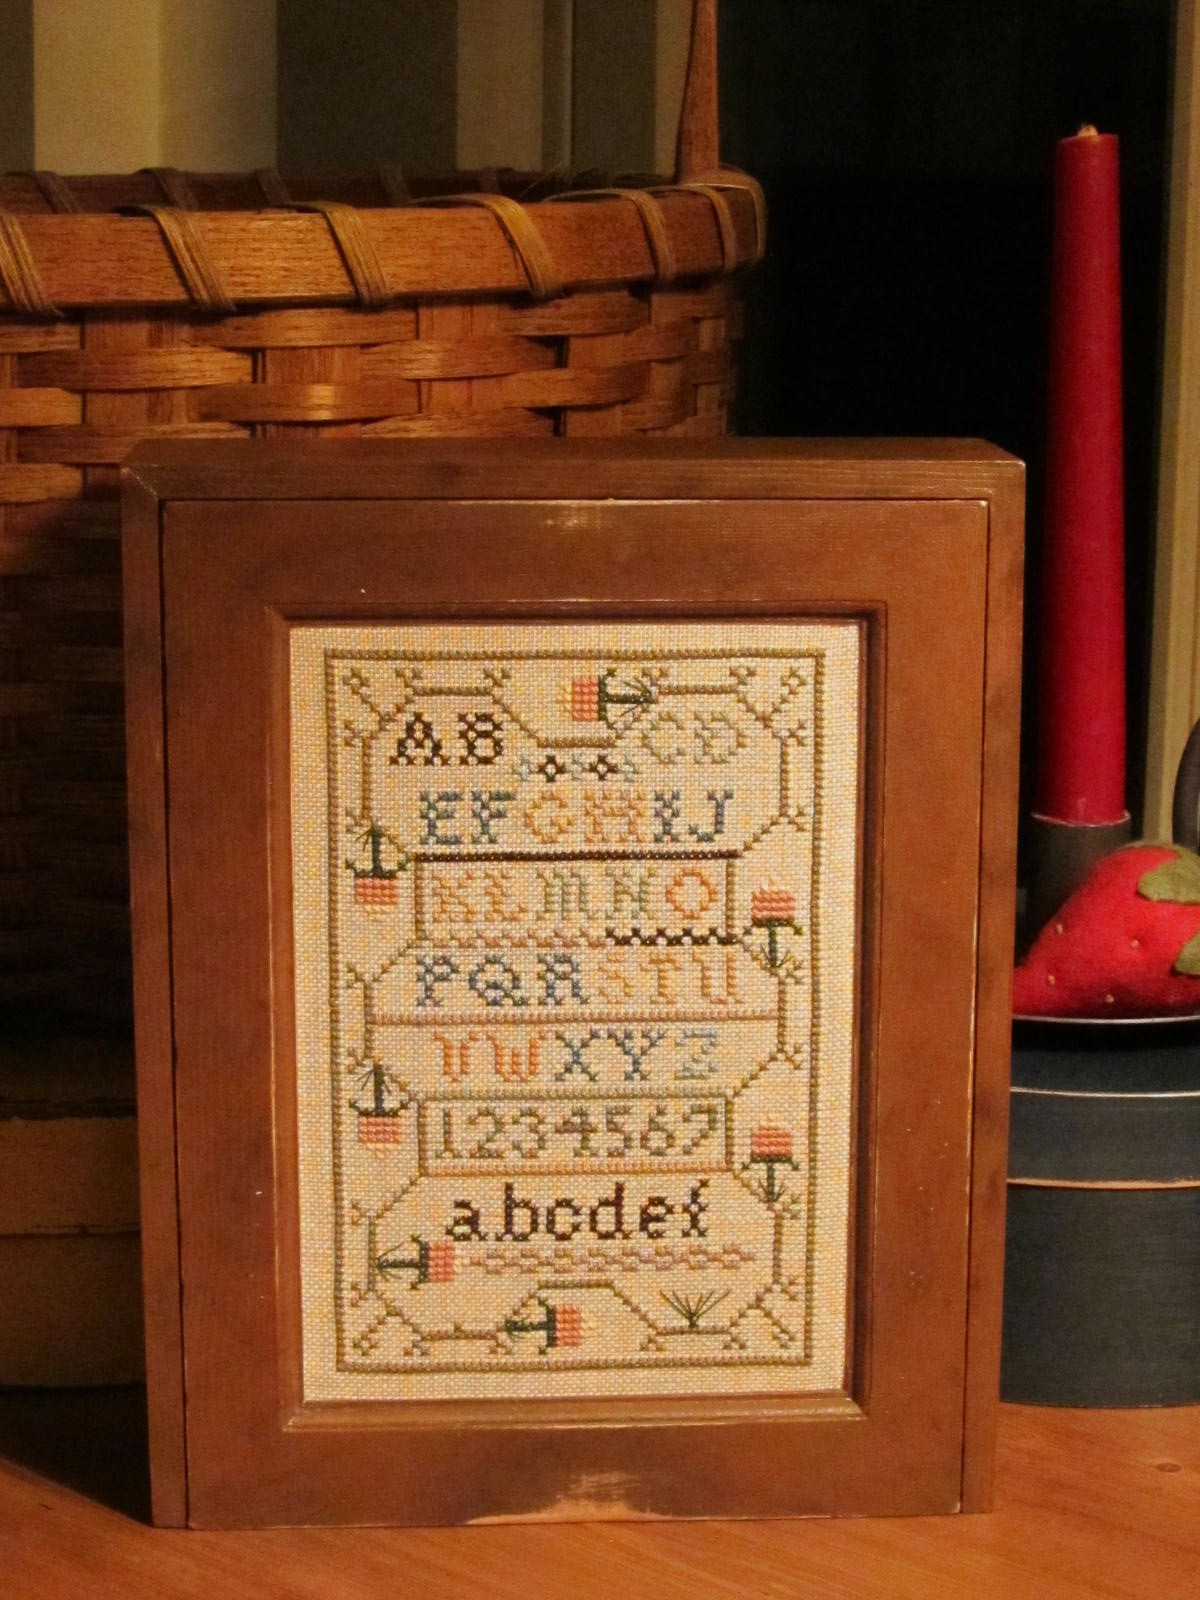 AB CD
EFGHIJ
KLMNO
PQRSTU
VWXYZ
1234567
abcdef